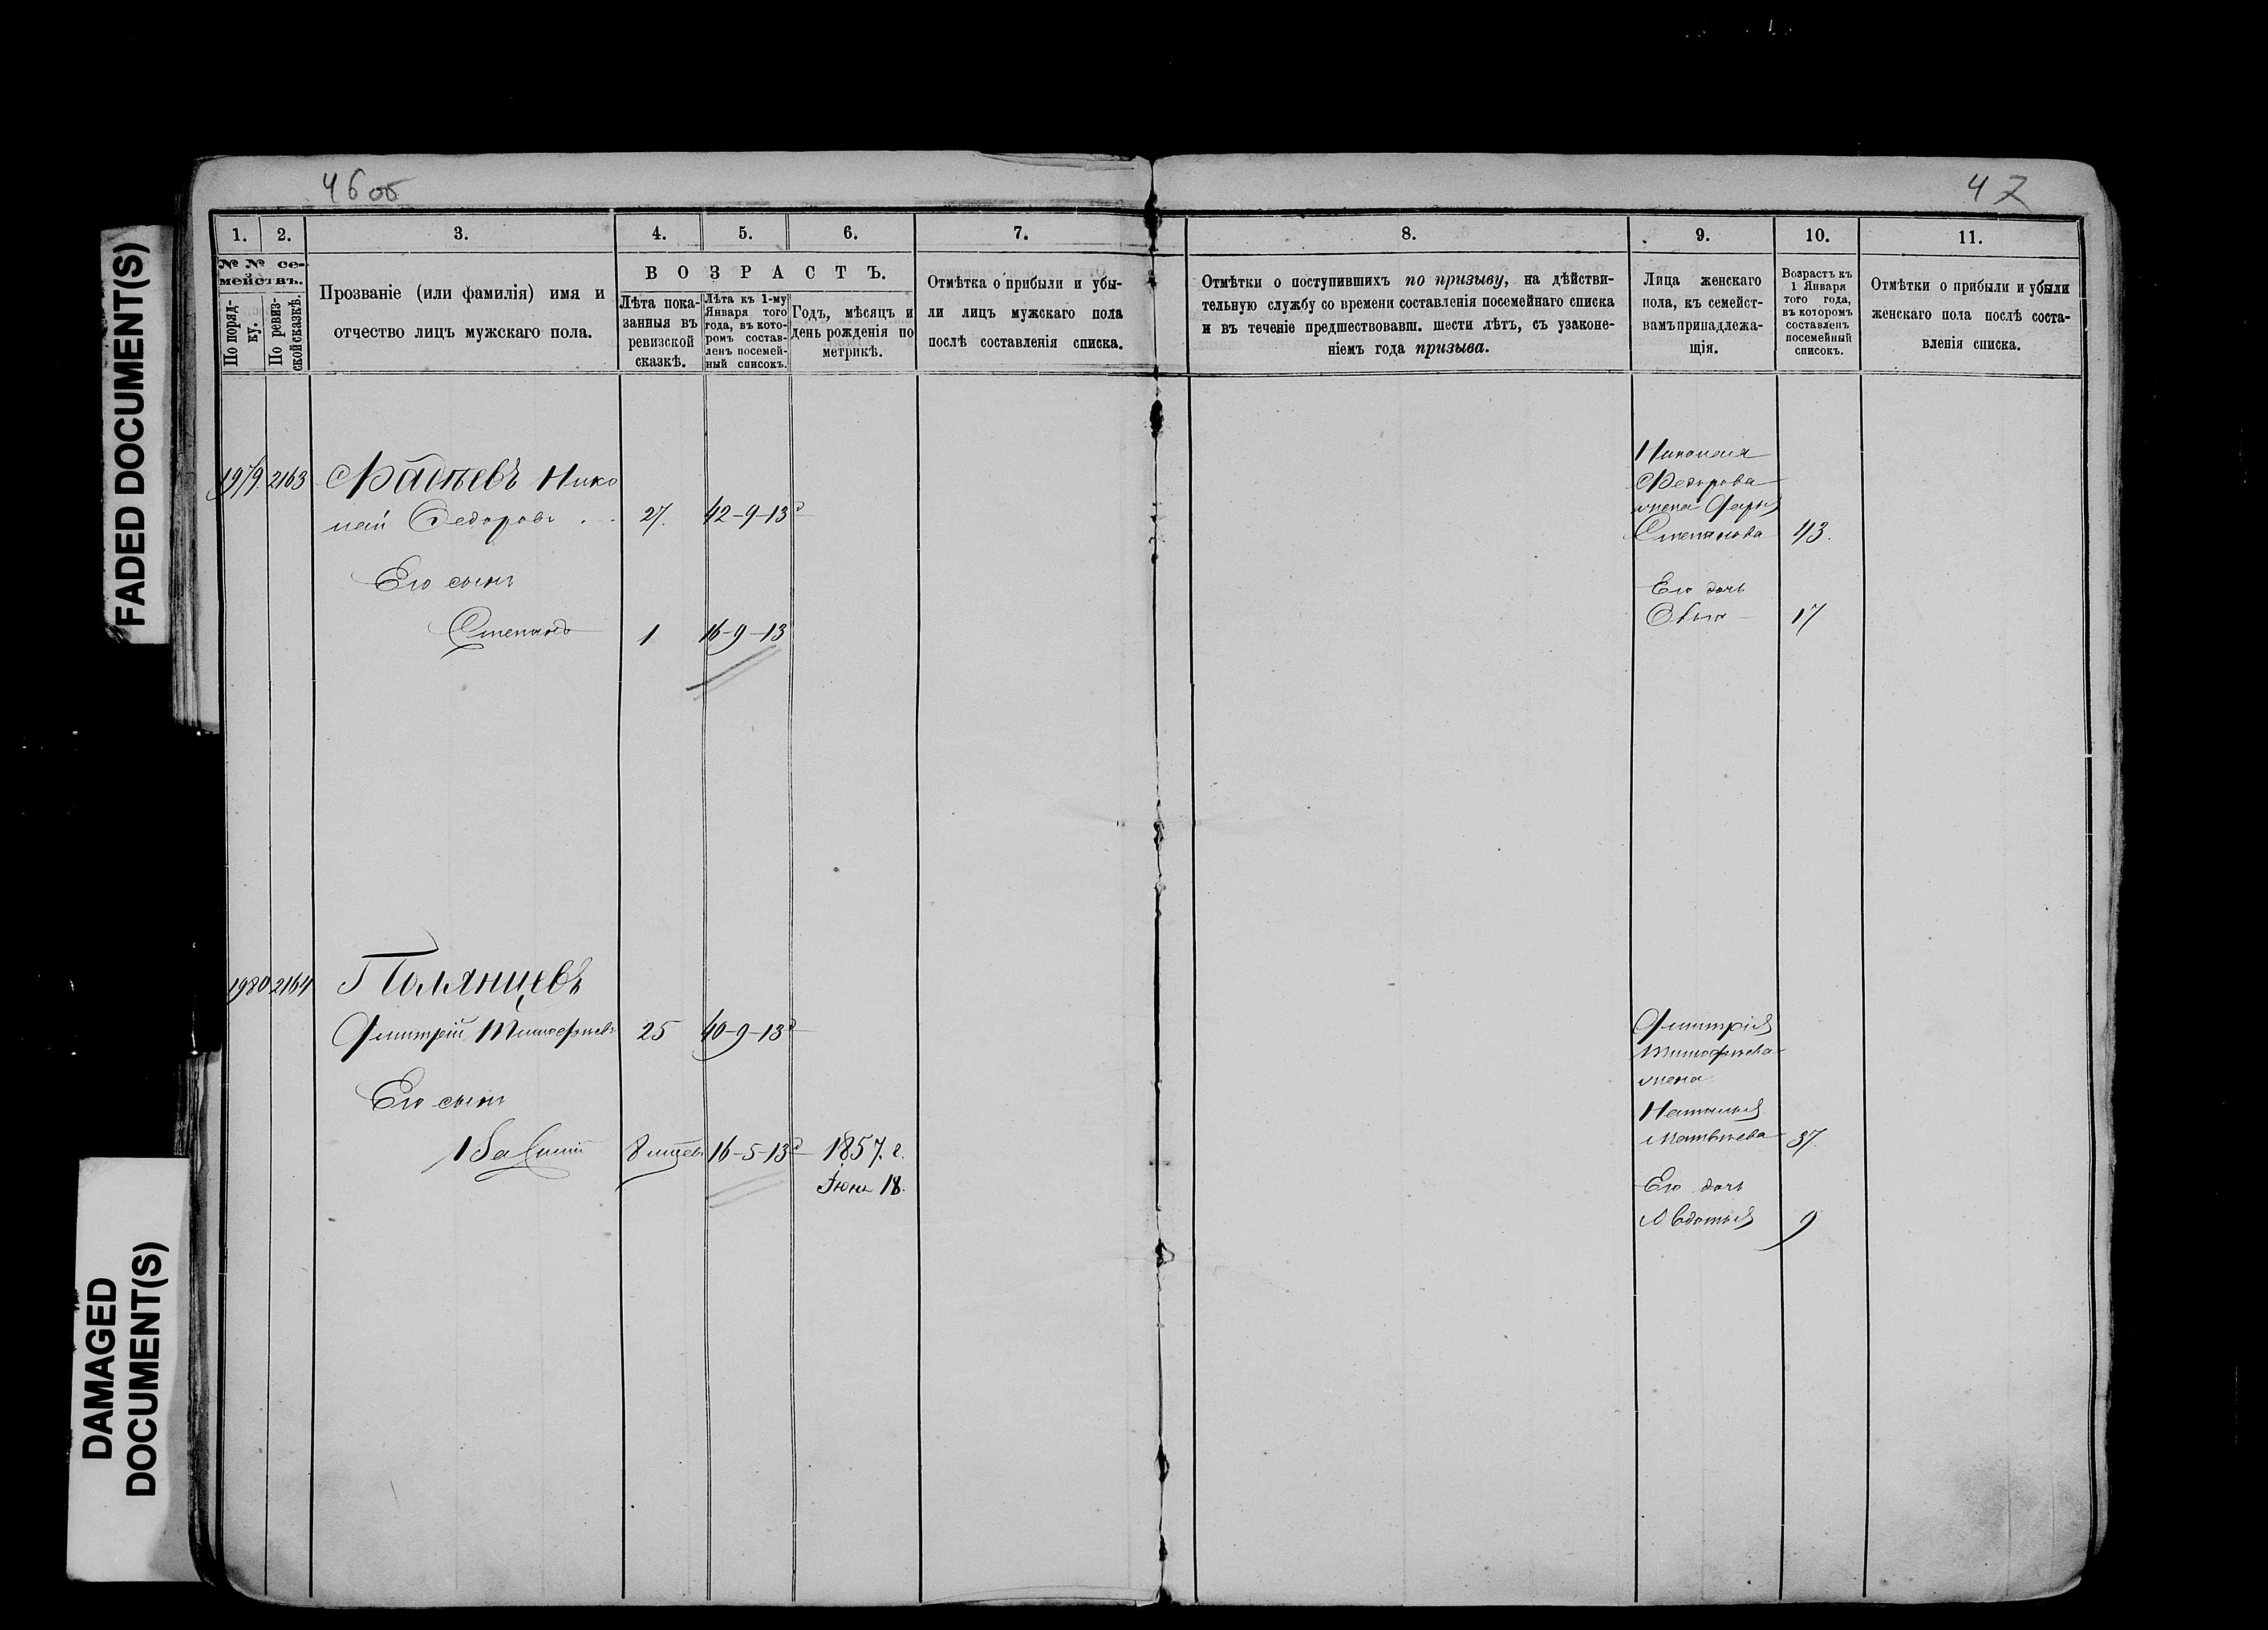 FADED DOCUMENT(S)
DAMAGED
DOCUMENT(S)
46 об
47
1.
2.
3.
4.
5.
6.
7.
8.
9.
10.
11.
№ № се-
мействъ.
По поряд-
ку.
По ревиз-
ской сказкѣ.
Прозваніе (или фамилія) имя и
отчество лицъ мужскаго пола.
ВОЗРАСТЪ.
Лѣта пока-
занныя въ
ревизской
сказкѣ.
Лѣта къ 1-му
Января того
года, въ кото-
ромъ состав-
ленъ посемей-
ный списокъ.
Годъ, мѣсяцъ и
день рожденія по
метрикѣ.
Отмѣтка о прибыли и убы-
ли лицъ мужскаго пола
послѣ составленія списка.
Отмѣтки о поступившихъ по призыву, на дѣйстви-
тельную службу со времени составленія посемейнаго списка
и въ теченіе предшествовавш. шести лѣтъ, съ узаконе-
ніемъ года призыва.
Лица женскаго
пола, къ семейст-
вамъ принадлежа-
щія.
Возрастъ къ
1 Января
того года,
въ которомъ
составленъ
посемейный
списокъ.
Отмѣтки о прибыли и убыли
женскаго пола послѣ соста-
вленія списка.
1979. 2163 Фадѣевъ Нико
лай Федоровъ . . 27. 42-9-13д
Его сынъ
Степанъ 1 16-9-13
Николая
Федорова
жена Дарья
Степанова 43.
Его дочь
17
1980 2164 Полянцевъ
Дмитрій Тимофѣевъ 25 40-9-13д
Его сынъ
Василій 8 мцевъ 16-5-13д 1857. г.
Іюнь 18.
Дмитрія
Тимофѣева
жена
Наталья
Матвѣева 37.
Его дочь
Авдотья 9